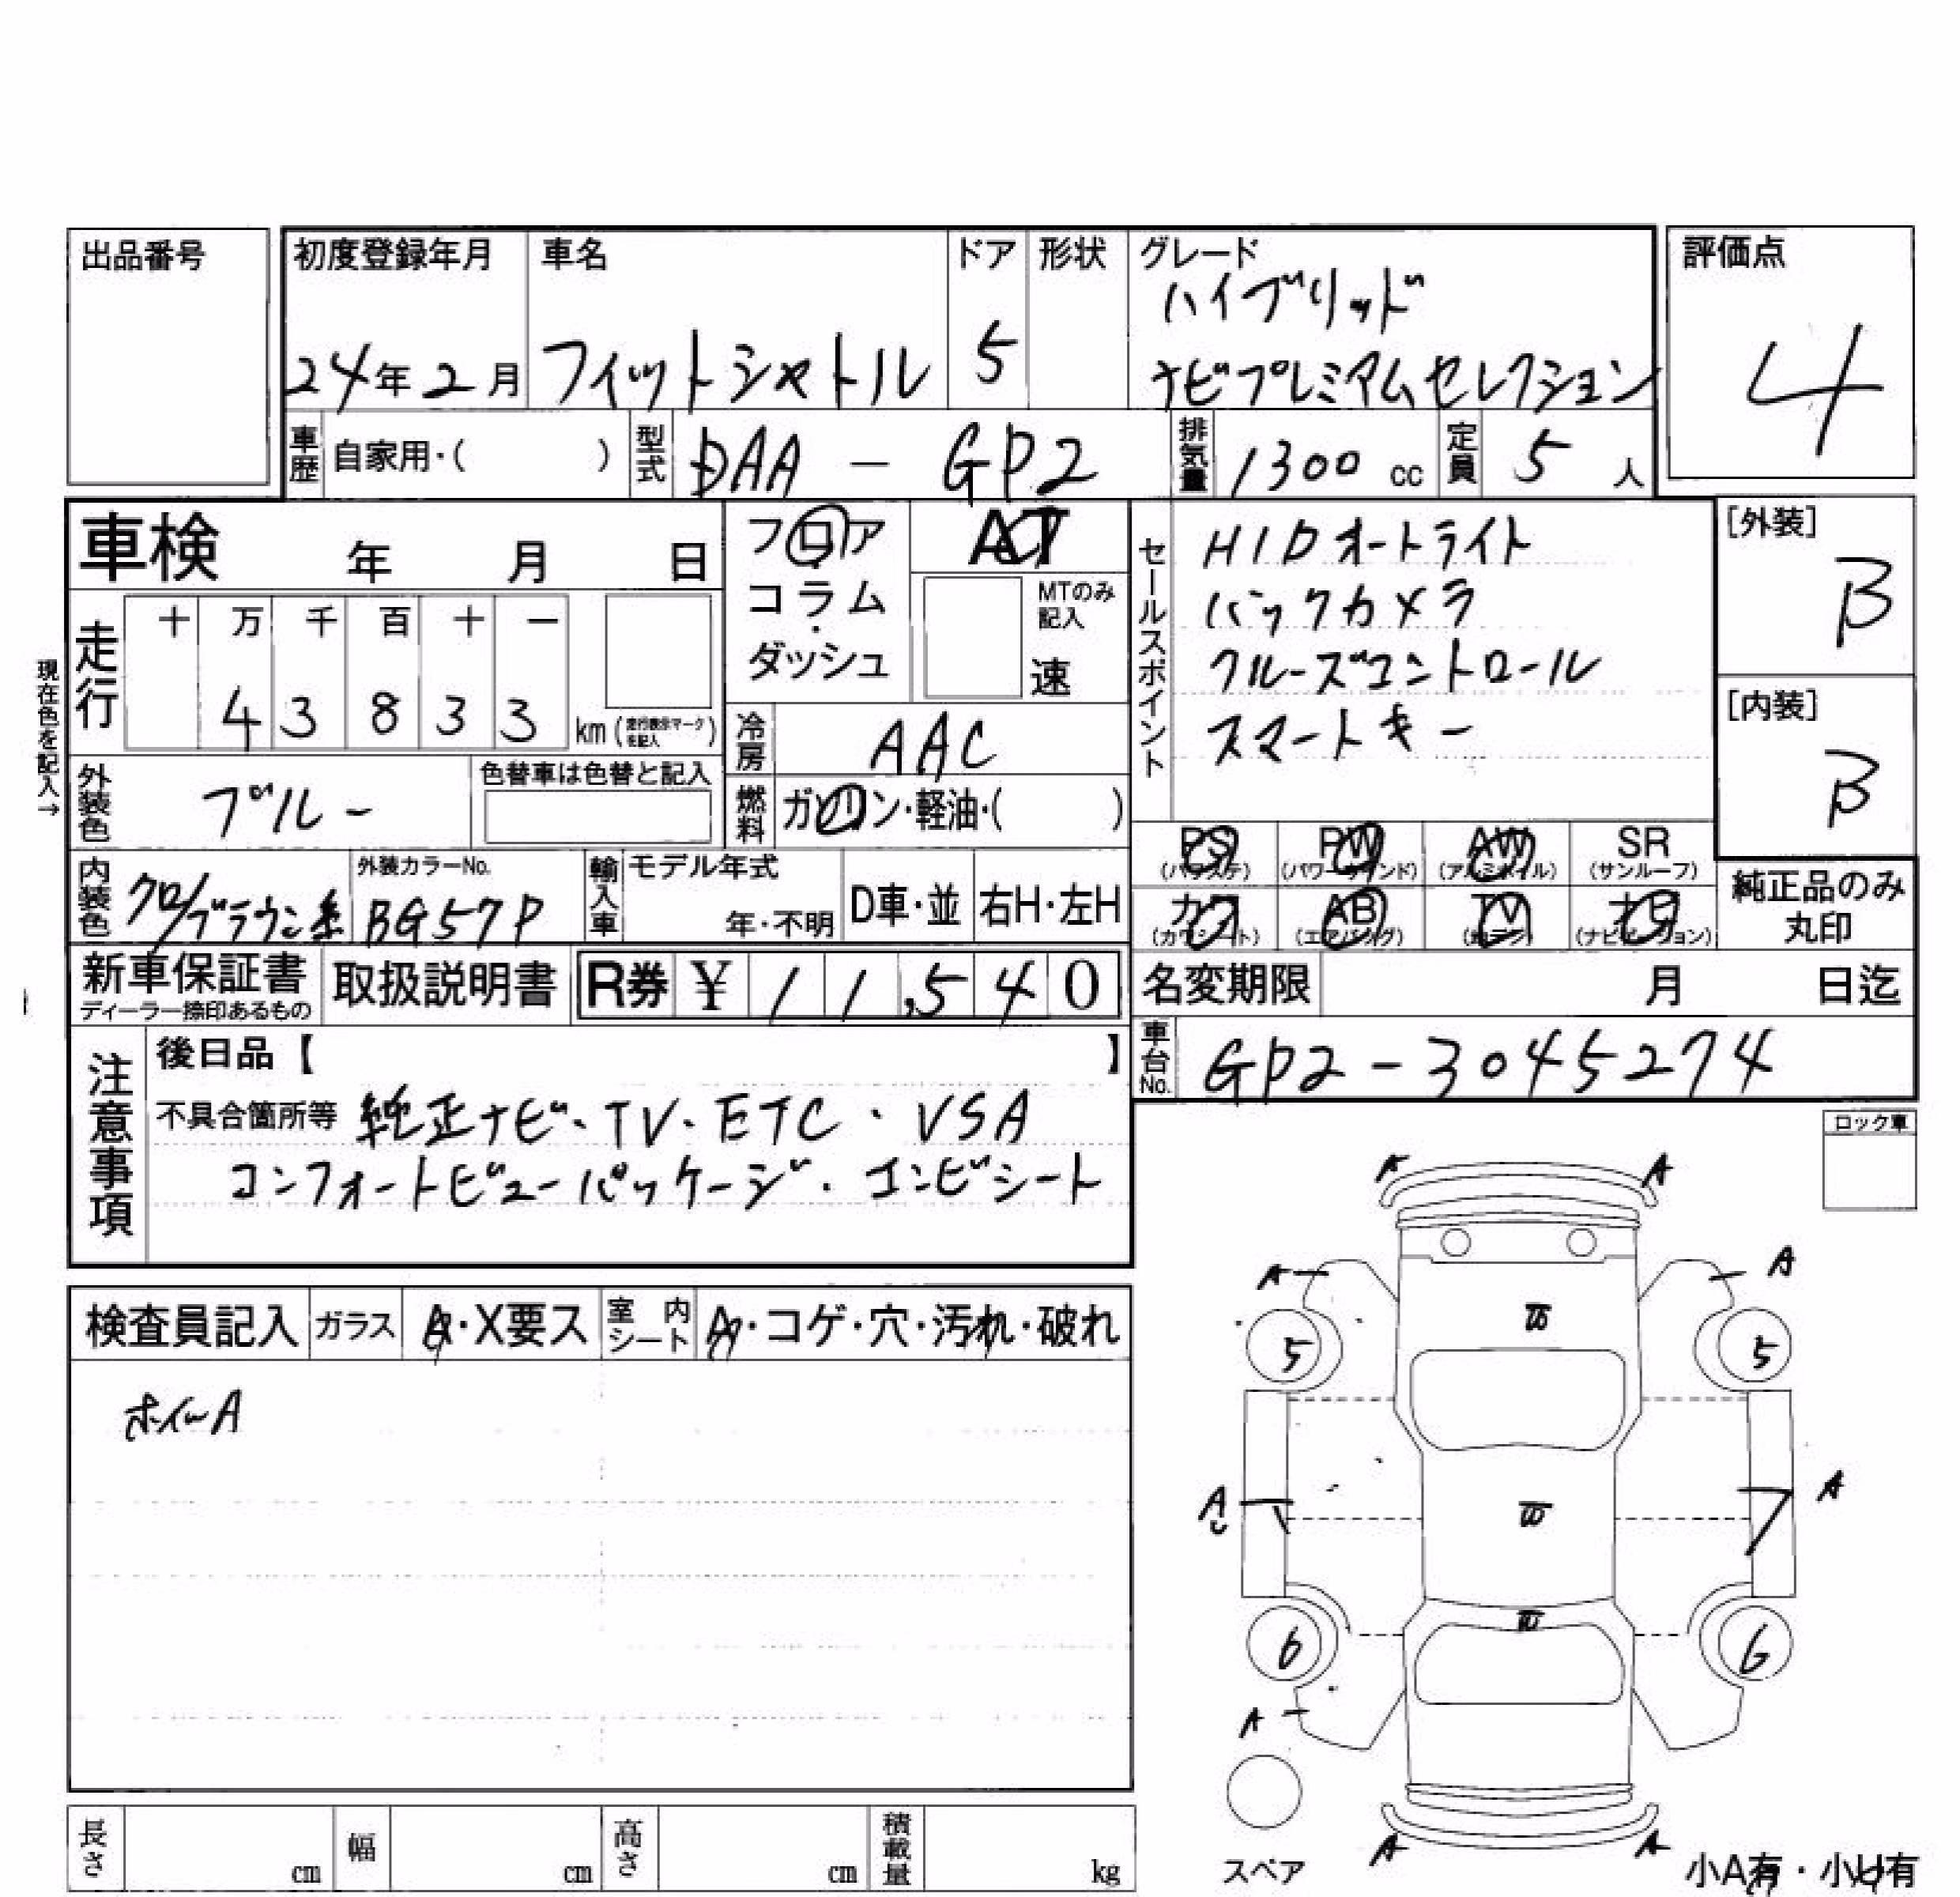 出品番号
初度登録年月
24年2月
車名
フィットシャトル
ドア
5
形状
グレード
ハイブリッド
ナビプレミアムセレクション
評価点
4
車歴
自家用・(　　)
型式
DAA - GP2
排気量
1300 cc
定員
5 人
車検　年　月　日
フロア
コラム
・
ダッシュ
AT
MTのみ
記入
速
セールスポイント
HIDオートライト
バックカメラ
クルーズコントロール
スマートキー
[外装]
B
[内装]
B
現在色を記入→
走行
十 万 千 百 十 一
4 3 8 3 3
km (走行表示マークを記入)
冷房
AAC
燃料
ガソリン・軽油・(　　)
外装色
ブルー
色替車は色替と記入
内装色
クロ/ブラウン系
外装カラーNo.
BG57P
輸入車
モデル年式
年・不明
D車・並
右H・左H
PS
(パワステ)
PW
(パワーウインド)
AW
(アルミホイル)
SR
(サンルーフ)
カワ
(カワシート)
AB
(エアバッグ)
TV
(地デジ)
ナビ
(ナビゲーション)
純正品のみ
丸印
新車保証書
ディーラー捺印あるもの
取扱説明書
R券 ¥ 11,540
名変期限　月　日迄
車台No.
GP2-3045274
注意事項
後日品【　　】
不具合箇所等 純正ナビ・TV・ETC・VSA
コンフォートビューパッケージ・コンビシート
ロック車
検査員記入
ガラス
A・X要ス
室内シート
A・コゲ・穴・汚れ・破れ
ホイールA
A A
A A
5 5
A A
6 6
A
A A
スペア
小A有・小U有
長さ cm
幅 cm
高さ cm
積載量 kg